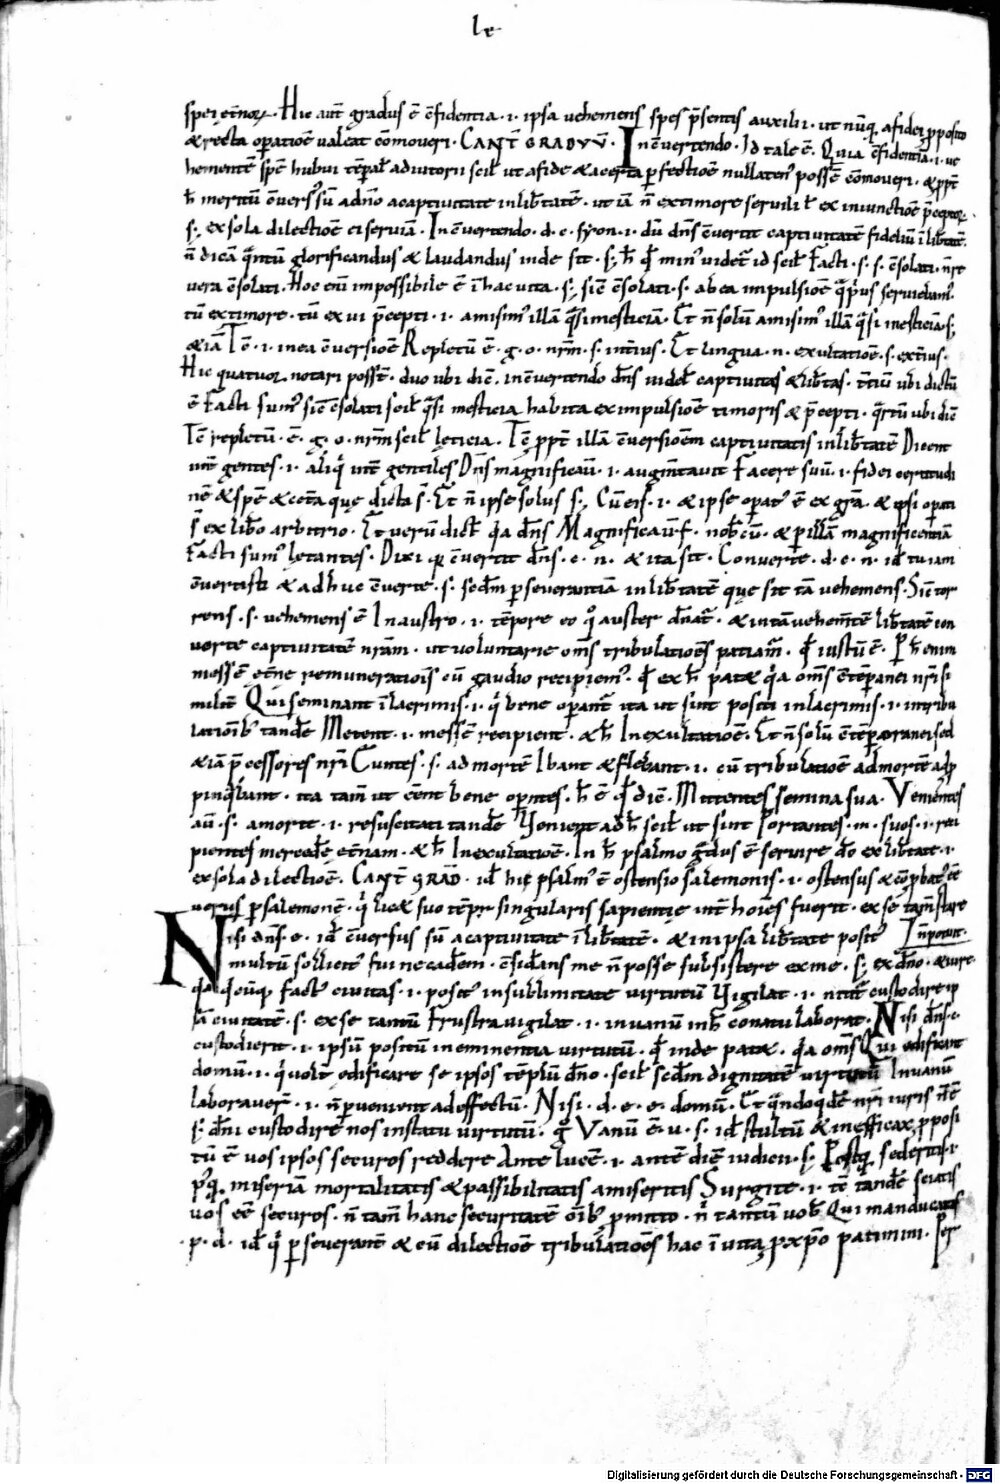 le
spei et̄nor. Hic aut̄ gradus ē c̄fidentia .i. ipsa vehemens spes p̄sentis auxilii. ut nūq, afidei pposito
& recta opatiōe valeat cōmoveri. CANT̄ GRADVV̄. In c̄vertendo. Id tale ē. Quia c̄fidentia .i. ve
hementē spē habui tēpał adiutorii scił ut afide & acerta pfectiōe nullaten' possē cōmoveri. & ppt̄
h̄ meritū cversꝰ sū adn̄o acaptivitate inlib̄tatē. ut iā n̄ extimore servili ł ex iniunctiōe p̄ceptor
s; ex sola dilectiōe ei serviā. In c̄vertendo .d. c. syon .i. dū dn̄s c̄vertit captivitatē fideliū ī lib̄tatē
n̄ dicā q̄ntū glorificandus & laudandus inde sit. s; h̄ qd̄ minꝰ videt' id scił Facti .s. s. c̄solati. n̄re
vera c̄solati. Hoc eni impossibile ē ī hac vita. s; sic c̄solati .s. ab ea impulsiōe q̄ pꝰus serviebamꝰ
tū extimore. tū ex vi p̄cepti .i. amisimꝰ illā q̄si mesticiā. Et n̄ solū amisimꝰ illā q̄si mesticiā. s;
& iā Tc̄ .i. inea c̄versiōe Repletū ē. g. o. nr̄m .s. int̄ius. Et lingua .n. exultatiōe .s. ext̄ius.
Hic quatuor notari posst̄. duo ubi dic̄. in c̄vertendo dn̄s videł captivitas & lib̄tas. t̄ciū ubi dictū
ē Facti sumꝰ sic c̄solati scił q̄si mesticia habita ex impulsiōe timoris & p̄cepti. q̄rtū ubi dic̄
Tc̄ repletū. ē. g. o. nr̄m scił lęticia. Tc̄ ppt̄ illā c̄versiōem captivitatis inlib̄tatē Dicent
int̄ gentes .i. aliq int̄ gentiles Dn̄s magnificau̅ .i. augm̄tavit Facere suu̅ .i. fidei certitudi
nē & spē & cet̄a quę dicta s̄. Et n̄ ipse solus s; Cu̅ eis .i. & ipse opat' ē ex gr̄a. & ipsi opati
s̄ ex libo arbitrio. Et verū dict̄ qa dn̄s Magnificau̅. nob̄cu̅. & p illā magnificentiā
Facti sumꝰ lętantes. Dixi qd̄ c̄vertit dn̄s .c. n. & ita sit. Converte .d. c. n. id̄ tu iam
c̄vertisti & adhuc c̄verte .s. sedm perseverantiā inlib̄tatē quę sit tā vehemens. Sic̄ tor
rens .s. vehemens ē In austro .i. tēpore eo q̊ auster dn̄at'. & intā vehem̄te lib̄tatē con
verte captivitatē nr̄am. ut voluntarie om̄s tribulatiōes patiam̄. qd̄ iustū ē. P h̄ enim
messē et̄ne remuneratiōis cū gaudio recipiemꝰ. qd̄ ex h̄ patæ qa om̄s c̄tēpanei nr̄i si
milit̄ Qui seminant ī lacrimis .i. q bene opant̄ ita ut sint positi inlacrimis .i. intribu
latiōib' tandē Metent .i. messē recipient. & h̄ Inexultatiōe. Et n̄ solū c̄tēporanei sed
& iā p̄cessores nr̄i Euntes .s. ad mortē Ibant & flebant .i. cū tribulatiōe ad mortē app
pinqbant. ita tam̄ ut eēnt bene opntes. h̄ ē qd̄ dic̄. Mittentes semina sua. Venientes
aū .s. amorte .i. resuscitati tandē Venient ad h̄ scił ut sint Portantes .m. suos .i. reci
pientes mercedē et̄nam. & h̄ Inexultatiōe. In h̄ psalmo gradus ē servire do ex lib̄tate .i.
ex sola dilectiōe. CANT̄ GRAD̄. id̄ hic psalmꝰ ē ostensio salemonis .i. ostensus & cōpbat' eē
verus p salemonē. q licet suo tēpr singularis sapientię int̄ hoīes fuerit. ex se tam̄ stare
n̄ potuit.
Nisi dn̄s .e. id̄ c̄versus sū acaptivitate ī lib̄tatē. & inipsa lib̄tate posit'
multū sollicit' fui ne cadem. c̄sid̄ans me n̄ posse subsistere ex me. s; ex dn̄o. & vere
qa qcūq fact' civitas .i. posit' insublimitate virtutū Vigilat .i. nitit' custodire ip
sā civitatē .s. ex se tantū Frustra vigilat .i. invanū inh̄ conatu laborat. Nisi dn̄s .c.
custodierit .i. ipsū positū ineminentia virtutū. qd̄ inde patæ. qa om̄s Qui edificant
domū .i. q volt̄ edificare se ipsos tēplū dn̄o. scił sedm dignitatē virtutū Invanū
laboraver̄ .i. n̄ pvenient ad effectū. Nisi .d. e. e. domū. Et q̄ndoqdē nr̄i iuris n̄ ē
s; dn̄i custodire nos instatu virtutū. g̊ Vanū ē. v. s. id̄ stultū & inefficax pposi
tū ē vos ipsos securos reddere Ante lucē .i. antē diē iudicii. s; Postq sederitis .i.
pꝰq miseriā mortalitatis & passibilitatis amiseritis Surgite .i. tc̄ tandē sciatis
vos eē securos. n̄ tam̄ hanc securitatē oīb' pmitto. n̄ tantū vob' Qui manducatis
.p. d. id̄ q pseverant & cū dilectiōe tribulatiōes hac ī vita p xpo patimini. Ser
Digitalisierung gefördert durch die Deutsche Forschungsgemeinschaft - DFG